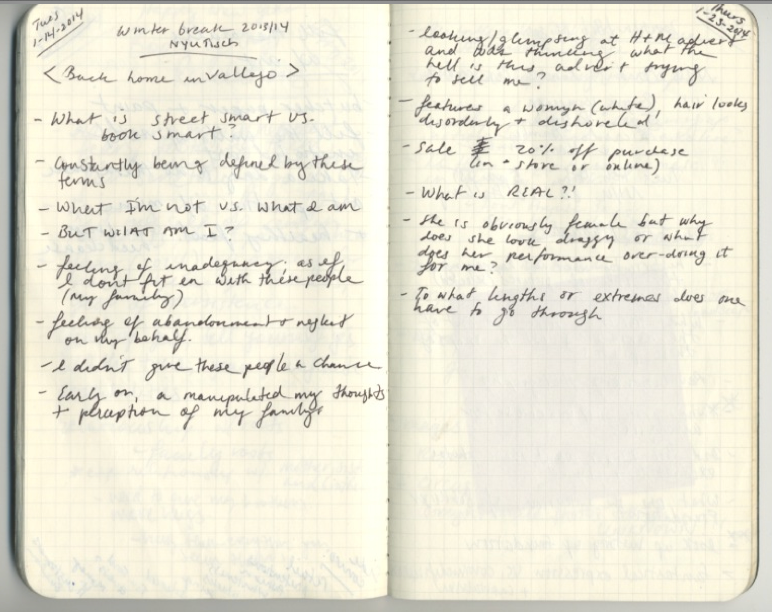 Tues
1-14-2014
Winter break 2013/14
NYU Tisch
< Back home in Vallejo >
- What is street smart vs.
book smart?
- Constantly being defined by these
terms
- What I'm not vs. what I am
- BUT WHAT AM I?
- feeling of inadequacy. as if
I don't fit in with these people
(my family)
- feeling of abandonment + neglect
on my behalf.
- I didn't give these people a chance
- Early on, a manipulated my thoughts
+ perception of my family
Thurs
1-23-2014
- looking/glimpsing at H+M advert
and thinking what the
hell is this advert trying
to sell me?
- features a womyn (white), hair looks
disorderly + disheveled
- Sale 20% off purchase
(in-store or online)
- What is REAL?!
- She is obviously female but why
does she look draggy or what
does her performance over-doing it
for me?
- To what lengths or extremes does one
have to go through